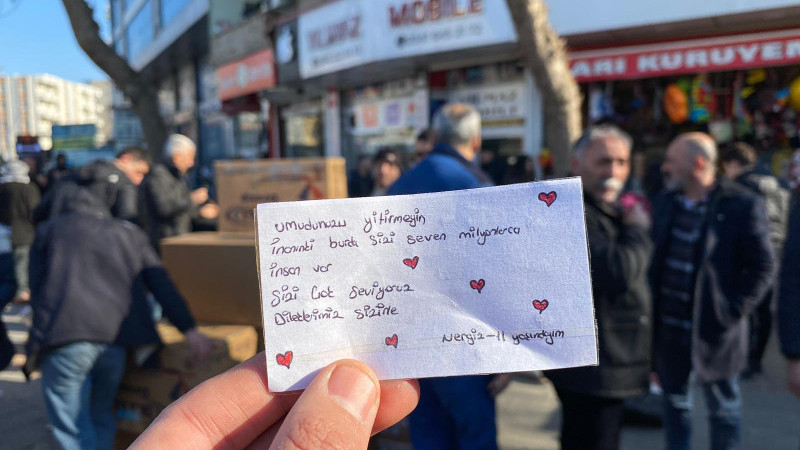 YILMAZ MOBİLE
ARI KURUYEM
umudunuzu yitirmeyin
inanınki burda sizi seven milyonlarca
insan var
sizi çok seviyoruz
Dileklerimiz sizinle
Nergiz-11 yaşındayım